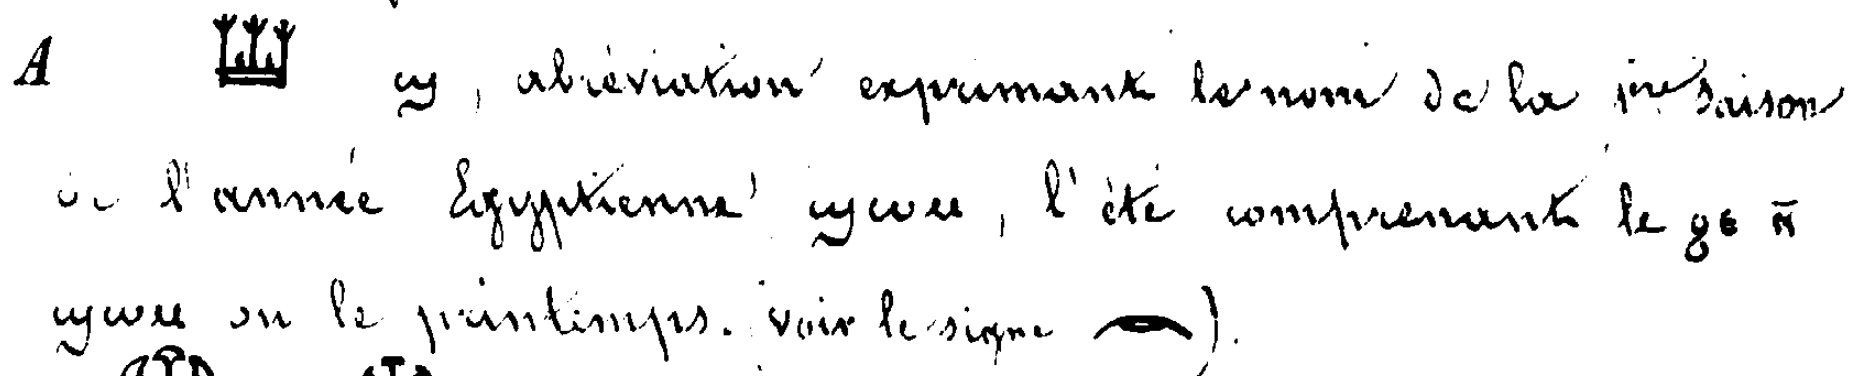 A 𓆷 ϣ, abréviation exprimant le nom de la 1ère saison
de l'année Egyptienne ϣⲱⲙ, l'été comprenant le ϩⲉ ⲛ̄
ϣⲱⲙ ou le printemps. voir le signe 𓂋).